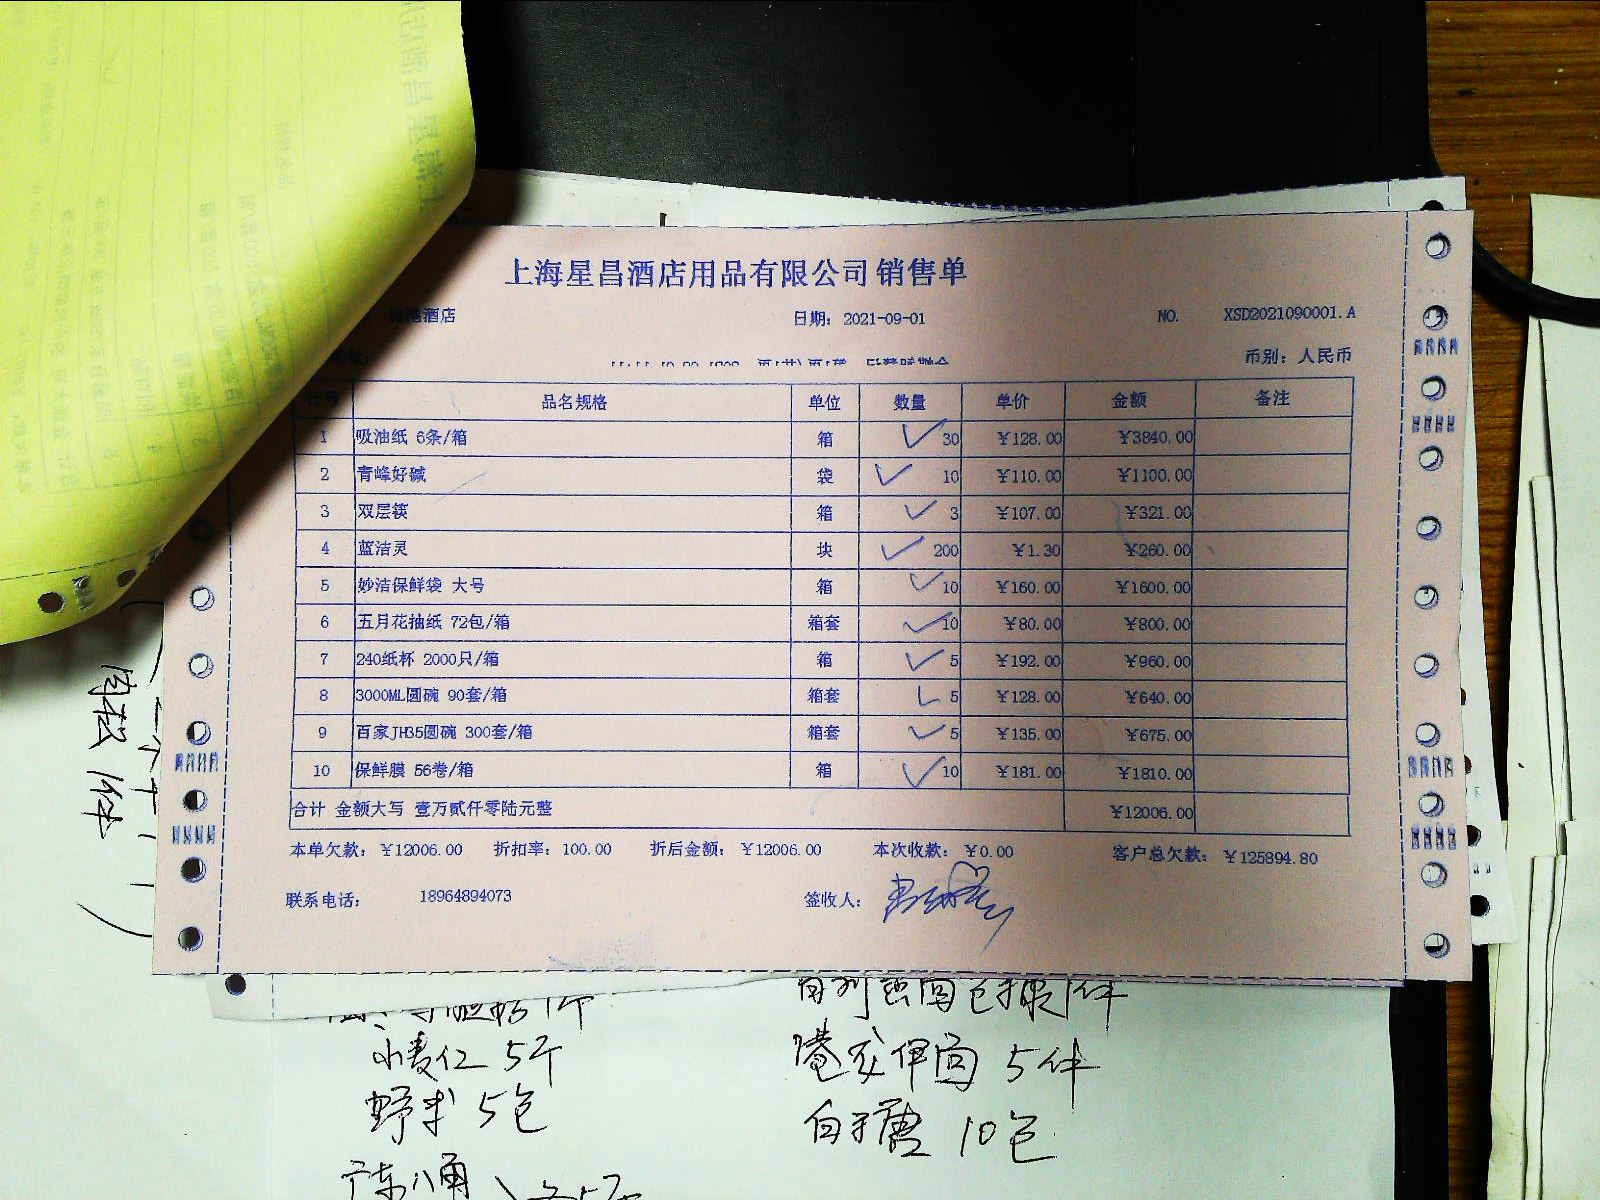 上海星昌酒店用品有限公司 销售单
酒店 日期: 2021-09-01 NO. XSD2021090001.A
币别: 人民币
行号 品名规格 单位 数量 单价 金额 备注
1 吸油纸 6条/箱 箱 30 ¥128.00 ¥3840.00
2 青峰好碱 袋 10 ¥110.00 ¥1100.00
3 双层筷 箱 3 ¥107.00 ¥321.00
4 蓝洁灵 块 200 ¥1.30 ¥260.00
5 妙洁保鲜袋 大号 箱 10 ¥160.00 ¥1600.00
6 五月花抽纸 72包/箱 箱套 10 ¥80.00 ¥800.00
7 240纸杯 2000只/箱 箱 5 ¥192.00 ¥960.00
8 3000ML圆碗 90套/箱 箱套 5 ¥128.00 ¥640.00
9 百家JH35圆碗 300套/箱 箱套 5 ¥135.00 ¥675.00
10 保鲜膜 56卷/箱 箱 10 ¥181.00 ¥1810.00
合计 金额大写 壹万贰仟零陆元整 ¥12006.00
本单欠款: ¥12006.00 折扣率: 100.00 折后金额: ¥12006.00 本次收款: ¥0.00 客户总欠款: ¥125894.80
联系电话: 18964894073 签收人:
小麦仁 5斤
野米 5包
5件
白糖 10包
广东八角